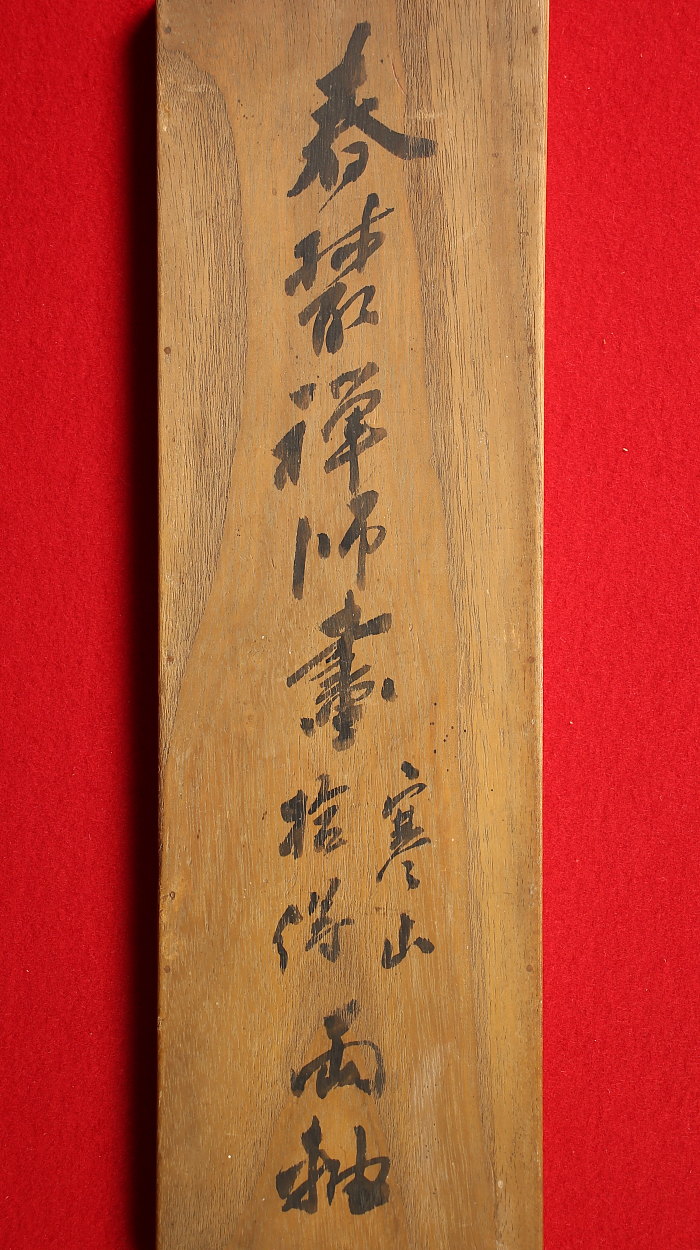 春叢禅師畫
寒山
拾得
両軸